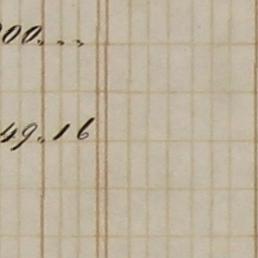 00 " "
49 " 16